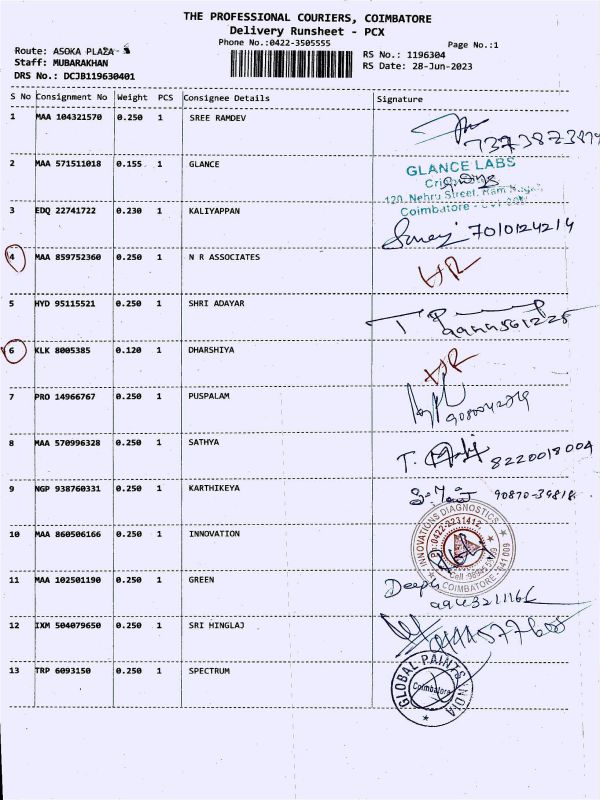 THE PROFESSIONAL COURIERS, COIMBATORE
Delivery Runsheet - PCX
Phone No.:0422-3505555
Page No.:1
Route: ASOKA PLAZA-
Staff: MUBARAKHAN
DRS No.: DCJB119630401
RS No.: 1196304
RS Date: 28-Jun-2023
S No Consignment No Weight PCS Consignee Details Signature
1 MAA 104321570 0.250 1 SREE RAMDEV
2 MAA 571511018 0.155 1 GLANCE
GLANCE LABS
120, Nehru Street, Ram Nagar
Coimbatore
3 EDQ 22741722 0.230 1 KALIYAPPAN
7010124214
4 MAA 859752360 0.250 1 N R ASSOCIATES
5 HYD 95115521 0.250 1 SHRI ADAYAR
6 KLK 8005385 0.120 1 DHARSHIYA
7 PRO 14966767 0.250 1 PUSPALAM
8 MAA 570996328 0.250 1 SATHYA
8220018004
9 NGP 938760331 0.250 1 KARTHIKEYA
10 MAA 860506166 0.250 1 INNOVATION
INNOVATIONS DIAGNOSTICS
COIMBATORE - 641 009
11 MAA 102501190 0.250 1 GREEN
Deepa
12 IXM 504079650 0.250 1 SRI HINGLAJ
13 TRP 6093150 0.250 1 SPECTRUM
GLOBAL PAINTS INDIA
Coimbatore